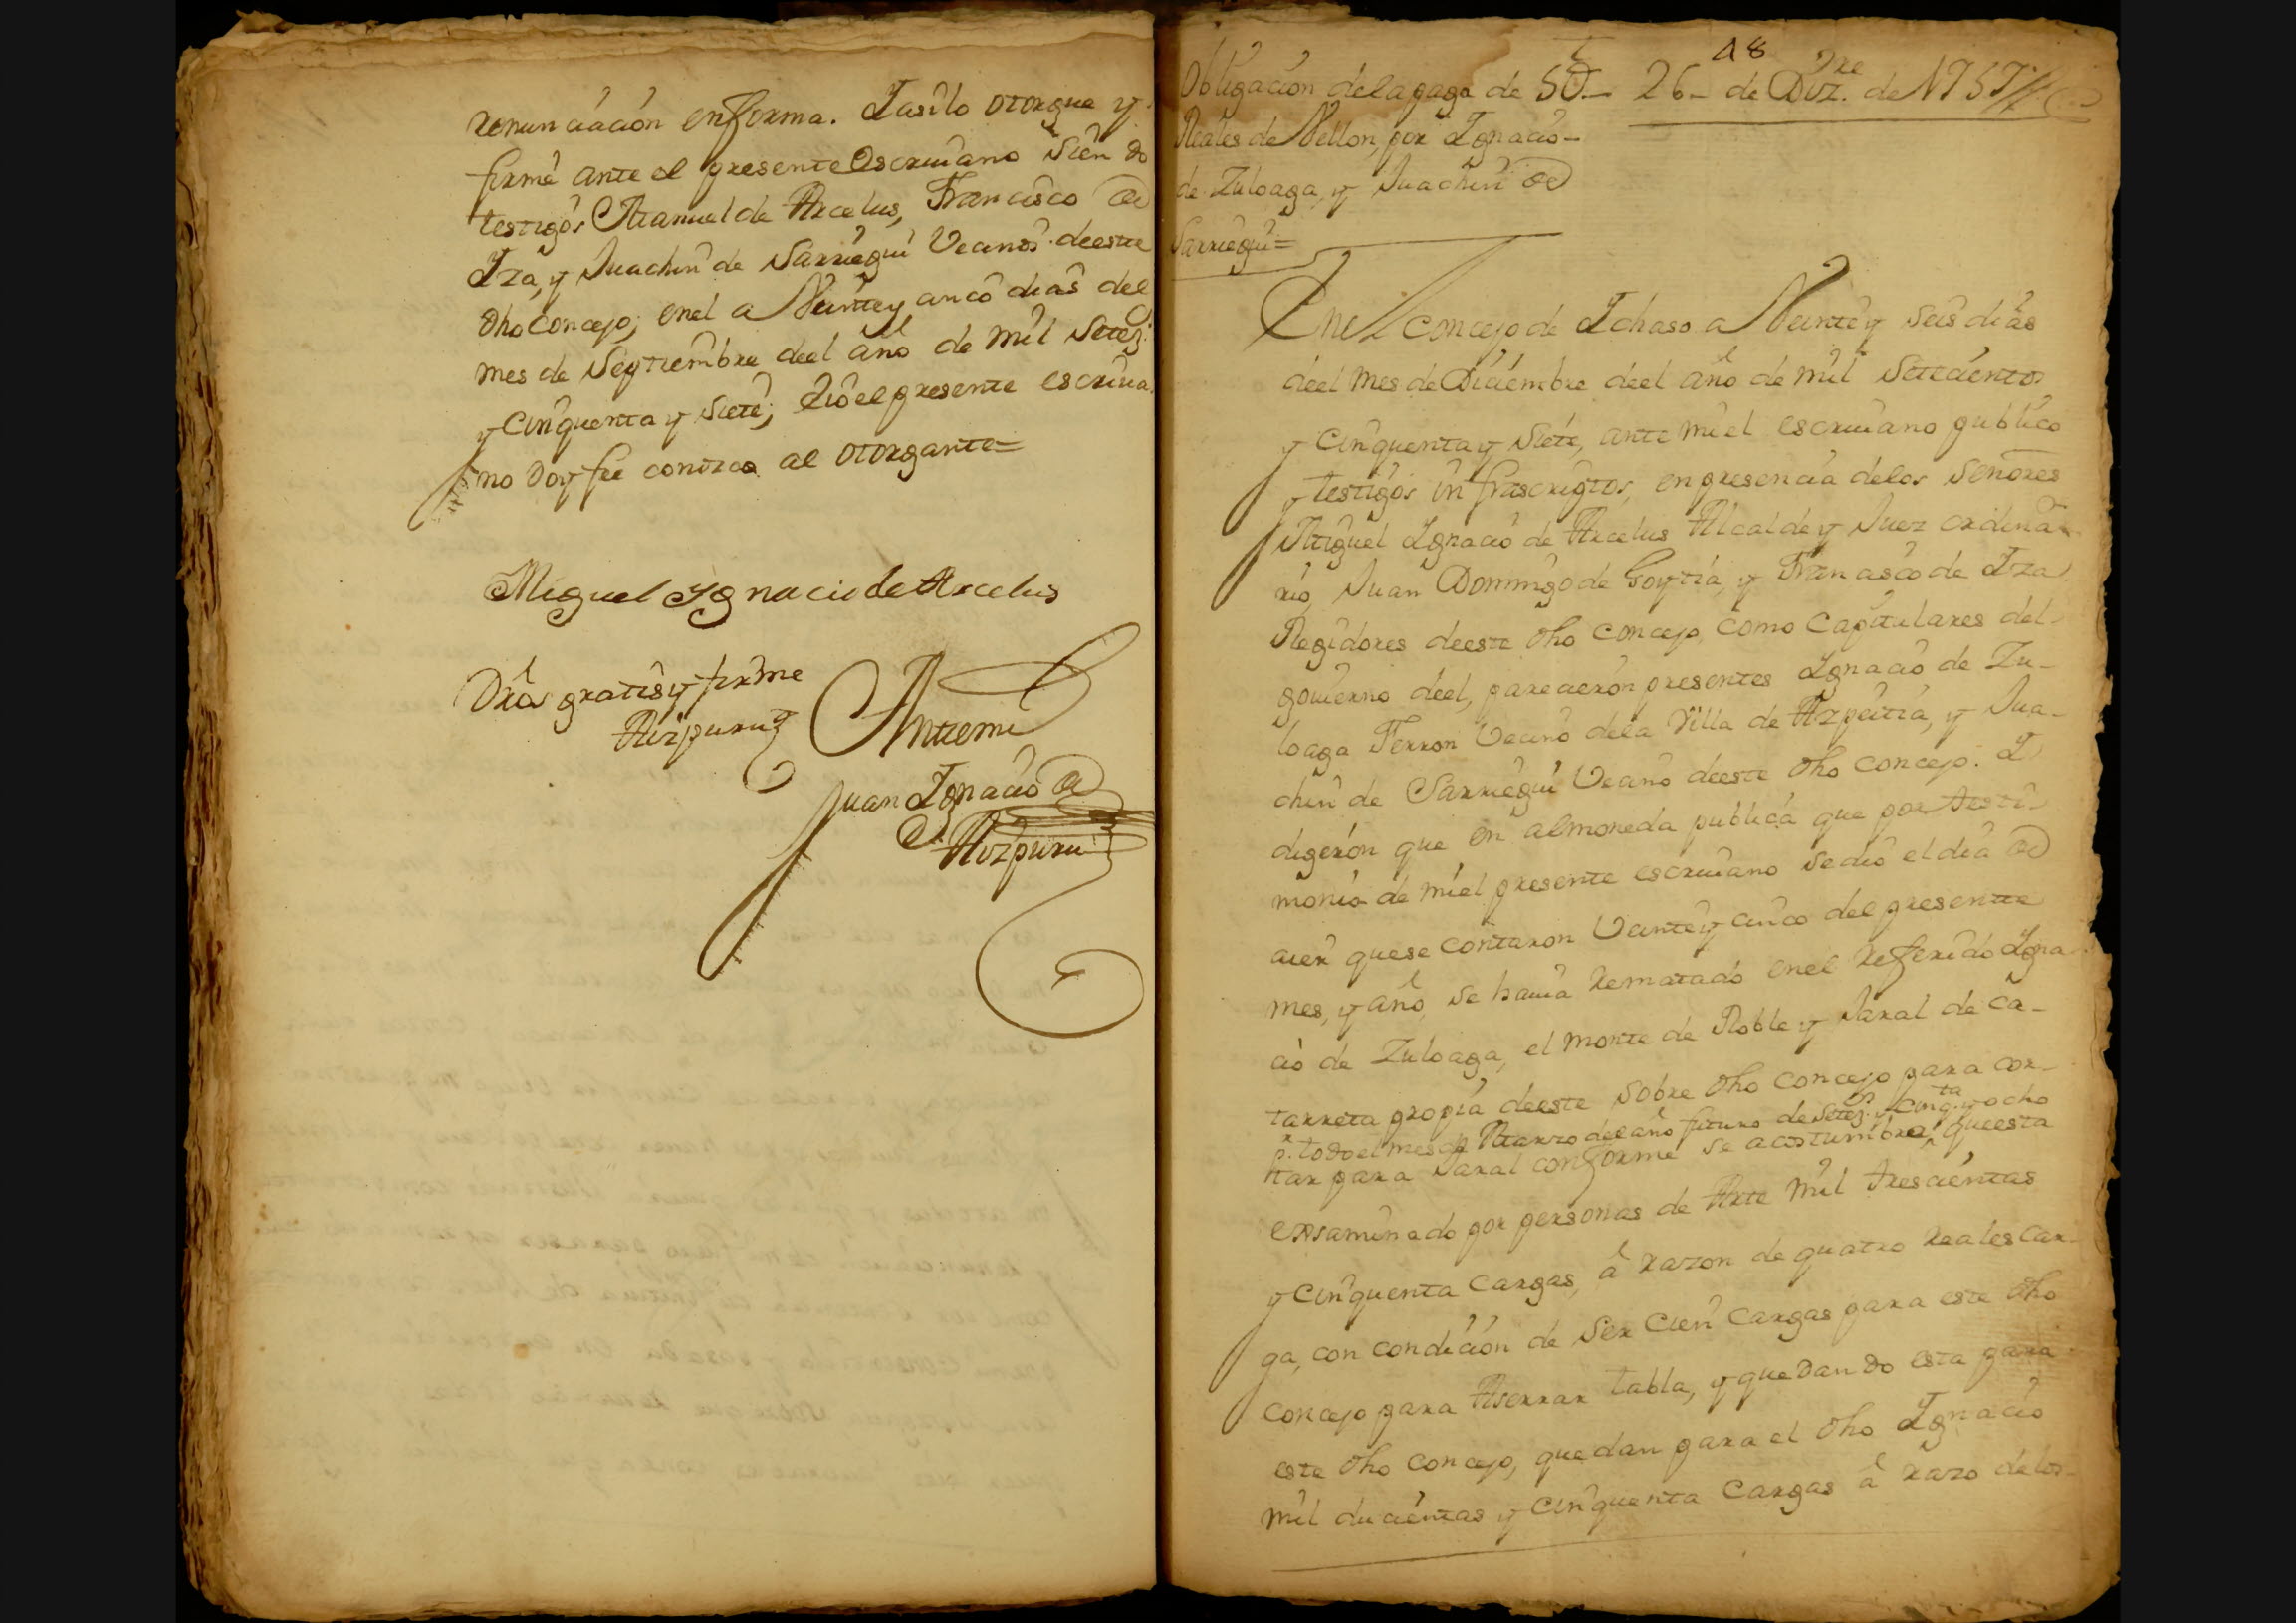 renunciación en forma. I asilo otorgue y
firmé ante el presente Escriuano siendo
testigos Manuel de Arcelus, Francisco de
Iza, y Juachin de Sarriegui Vecinos de este
dho Concejo; en el a Veinte y cinco dias del
mes de Septiembre de el año de mil Setez.
y Cinquenta y siete; Iio el presente escriua
no Doy fee conozco al otorgante=
Miguel Ygnacio de Arcelus
Dros gratis y firme
Aizpuru
Antemi
Juan Ignacio de
Aizpuru
48
Obligación de la paga de 50_ 26_ de Diz.re de 1757
Reales de Vellon, por Ignacio
de Zuloaga, y Juachin de
Sarriegui=
En el Concejo de Ichaso a Veinte y seis dias
de el mes de Diciembre de el año de mil setecientos
y Cinquenta y siete, ante mi el escriuano publico
y testigos infrascriptos, en presencia de los Señores
Miguel Ignacio de Arcelus Alcalde y Juez ordina
rio, Juan Domingo de Goytia, y Francisco de Iza
Regidores de este dho Concejo, como Capitulares del
gouierno de el, parecieron presentes Ignacio de Zu-
loaga Ferron Vecino de la Villa de Azpeitia, y Jua-
chin de Sarriegui Vecino de este dho Concejo. I
digeron que en almoneda publica que por testi-
monio de mi el presente escriuano se dio el dia de
aier que se contaron Veinte y cinco del presente
mes, y año, se hauia Rematado en el Referido Igna
cio de Zuloaga, el monte de Roble y Jaral de Ca-
tarreta propia de este sobre dho Concejo para cor-
p.r todo el mes de Marzo del año futuro de Setez.s y cinq.ta y ocho
tar para Jaral conforme se acostumbra, que esta
exsaminado por personas de Arte mil trescientas
y Cinquenta Cargas, â razon de quatro Reales Car-
ga, con condicion de ser Cien Cargas para este dho
Concejo para Aserrar tabla, y quedando esta para
este dho Concejo, quedan para el dho Ignacio
mil ducientas y Cinquenta Cargas â razo de los